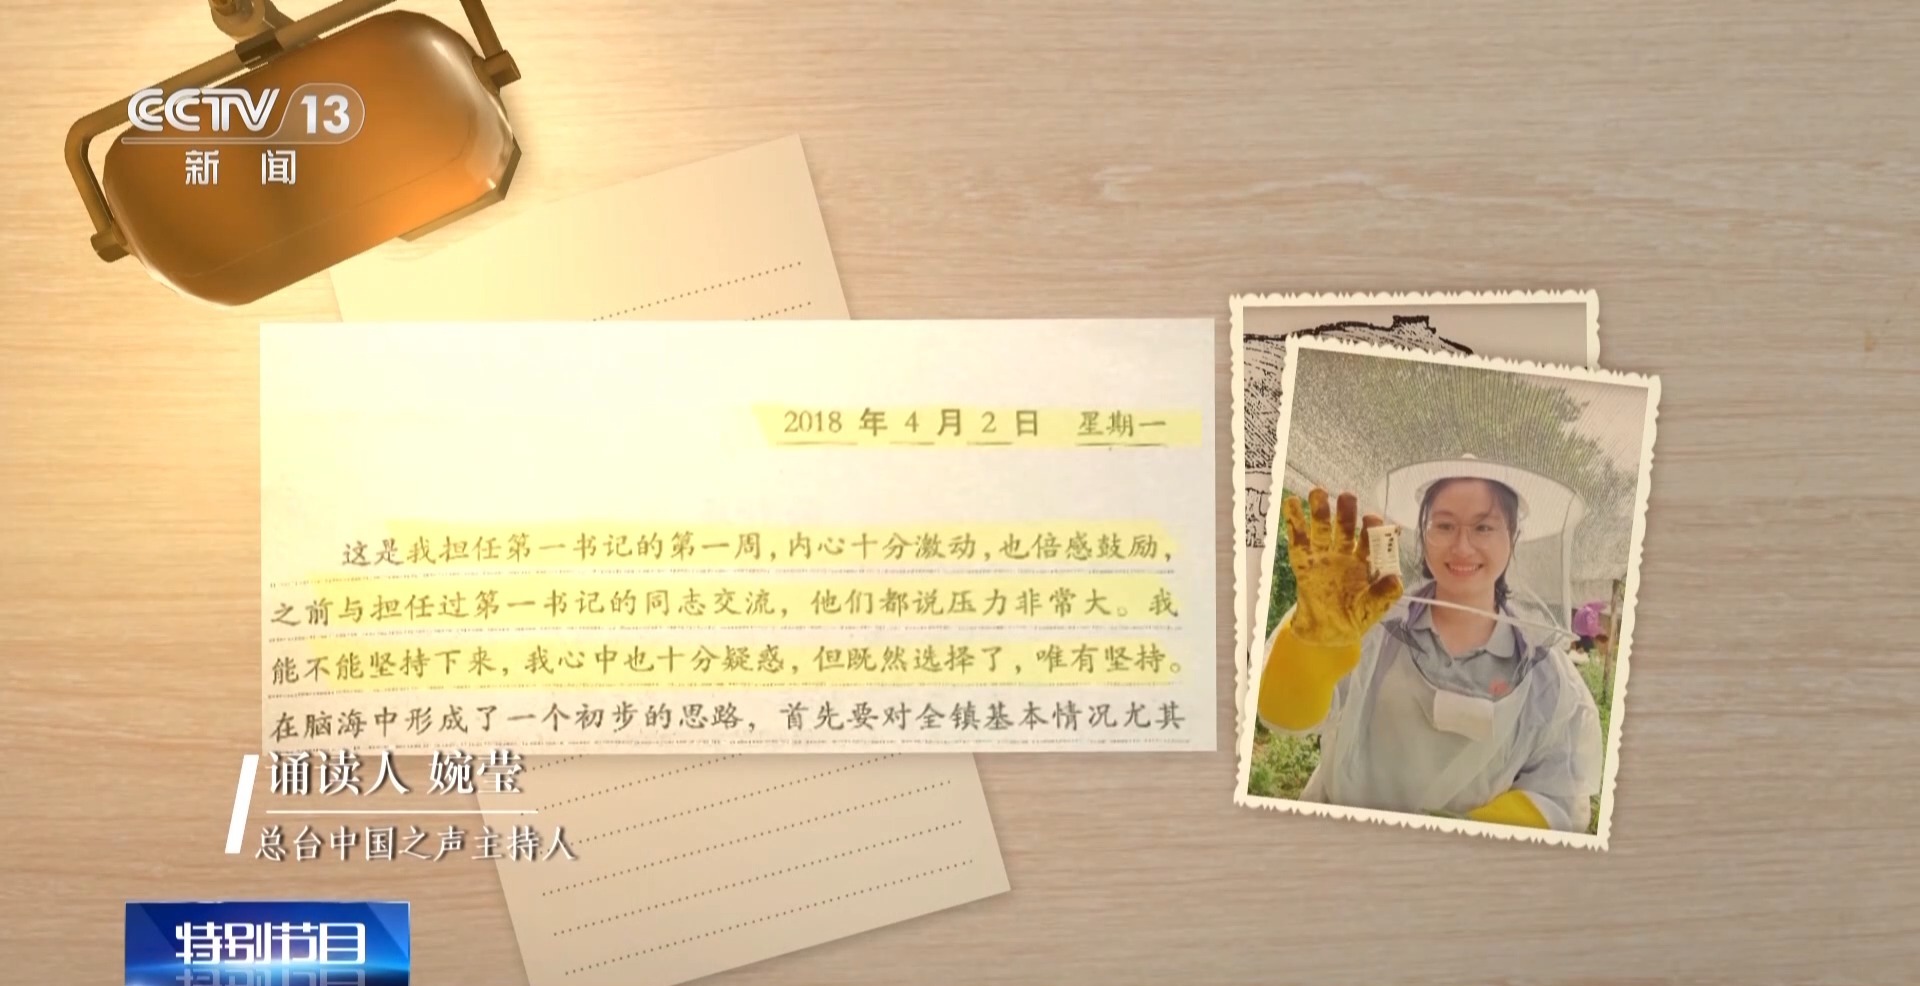 CCTV 13
新闻
2018 年 4 月 2 日 星期一
这是我担任第一书记的第一周，内心十分激动，也倍感鼓励，
之前与担任过第一书记的同志交流，他们都说压力非常大。我
能不能坚持下来，我心中也十分疑惑，但既然选择了，唯有坚持。
在脑海中形成了一个初步的思路，首先要对全镇基本情况尤其
诵读人 婉莹
总台中国之声主持人
特别节目